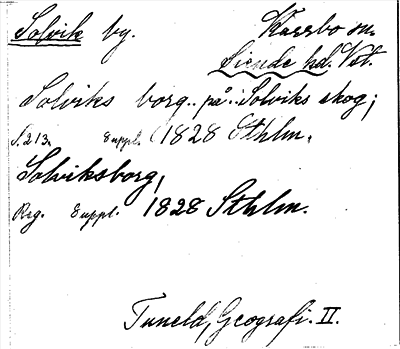 Solvik by. Kärrbo sn.
Siende hd. Vstl.
Solviks borg.. på.. Solviks skog;
S. 213. Suppl. (1828 Sthlm.
Solviksborg,
Reg. Suppl. 1828 Sthlm.
Tuneld, Geografi. II.